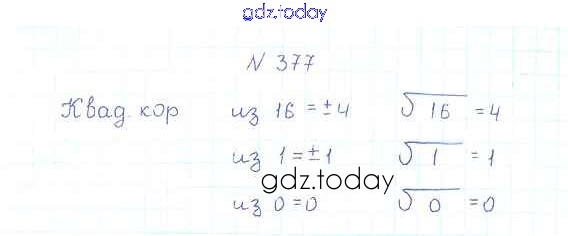 gdz.today
N 377
Квад. кор из 16 = ±4 √16 = 4
из 1 = ±1 √1 = 1
gdz.today
из 0 = 0 √0 = 0